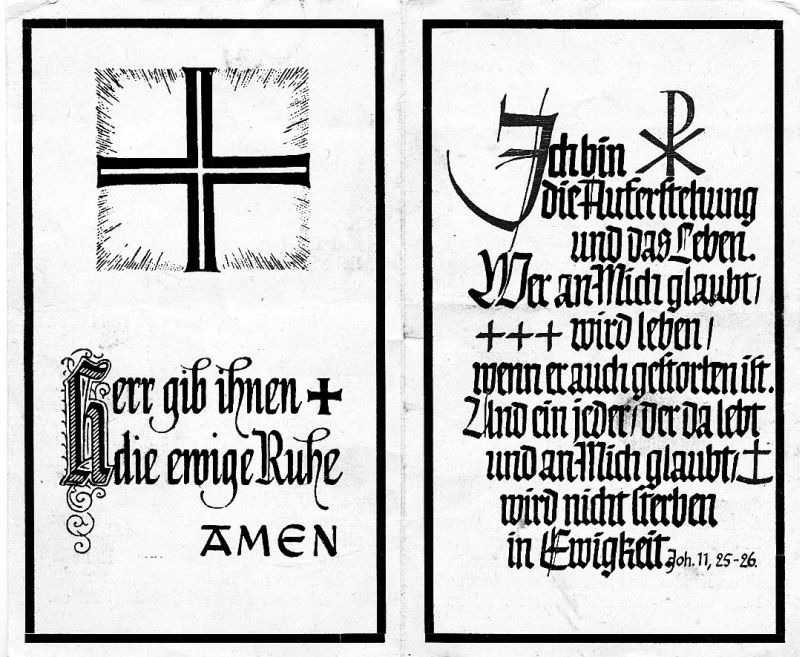 Herr gib ihnen
die ewige Ruhe
AMEN
Ich bin
die Auferstehung
und das Leben.
Wer an Mich glaubt/
+++ wird leben/
wenn er auch gestorben ist.
Und ein jeder/der da lebt
und an Mich glaubt/
wird nicht sterben
in Ewigkeit Joh. 11, 25-26.